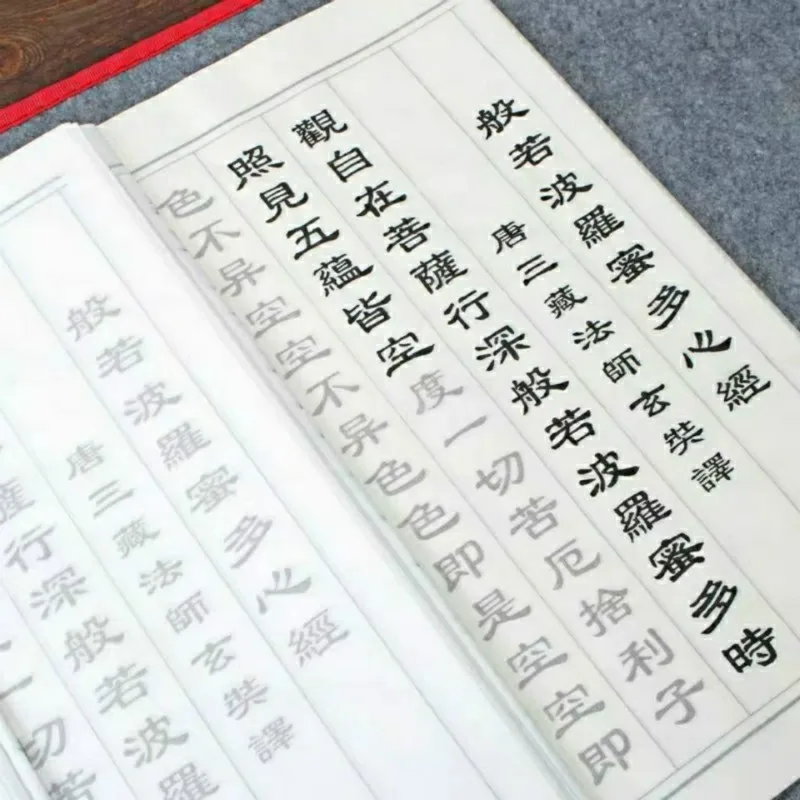 般若波羅蜜多心經
唐三藏法師玄奘譯
觀自在菩薩行深般若波羅蜜多時
照見五蘊皆空度一切苦厄捨利子
色不异空空不异色色即是空空即
般若波羅蜜多心經
唐三藏法師玄奘譯
薩行深般若波羅
一切苦